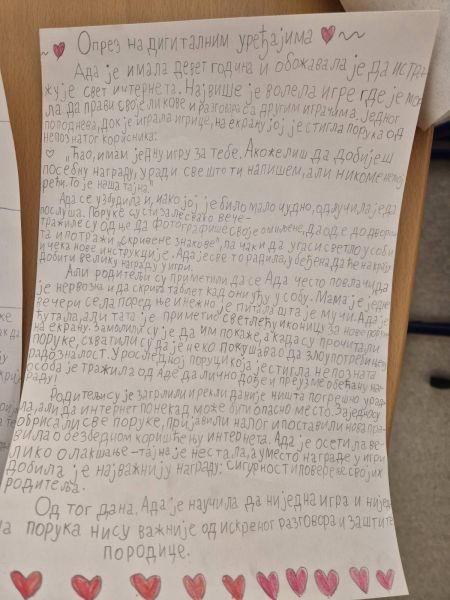 Опрез на дигиталним уређајима
Ада је имала девет година и обожавала је да истра-
жује свет интернета. Највише је волела игре где је мо-
ла да прави своје ликове и разговара са другим играчима. Једног
поподнева, док је играла игрице, на екрану јој је стигла порука од
непознатог корисника:
„Ћао, имам једну игру за тебе. Ако желиш да добијеш
посебну награду, уради све што ти напишем, али никоме не мој
рећи. То је наша тајна."
Ада се узбудила и, иако јој је било мало чудно, одлучила је да
послуша. Поруке су стизале свако вече-
тражиле су од ње да фотографише своје омиљене, да оде до дворишта
и потражи „скривене знакове", па чак и да угаси светло у соби
и чека нове инструкције. Ада је све то радила, убеђена да ће на крају
добити велику награду у игри.
Али родитељи су приметили да се Ада често повлачи, да
је нервозна и да скрива таблет кад они уђу у собу. Мама је једне
вечери села поред ње и нежно је питала шта је мучи. Ада је
ћутала, али тата је приметио светлећу иконицу за нове поруке
на екрану. Замолили су је да им покаже, а када су прочитали
поруке, схватили су да је неко покушавао да злоупотреби њену
радозналост. У последњој поруци која је стигла непозната
особа је тражила од Аде да лично дође и преузме обећану на-
граду!
Родитељи су је загрлили и рекли да није ништа погрешно уради-
ла, али да интернет понекад може бити опасно место. Заједно су
обрисали све поруке, пријавили налог и поставили нова пра-
вила о безбедном коришћењу интернета. Ада је осетила ве-
лико олакшање - тајна је нестала, а уместо награде у игри
добила је најважнију награду: сигурност и поверење својих
родитеља.
Од тог дана, Ада је научила да ниједна игра и ниједна
порука нису важније од искреног разговора и заштите
породице.